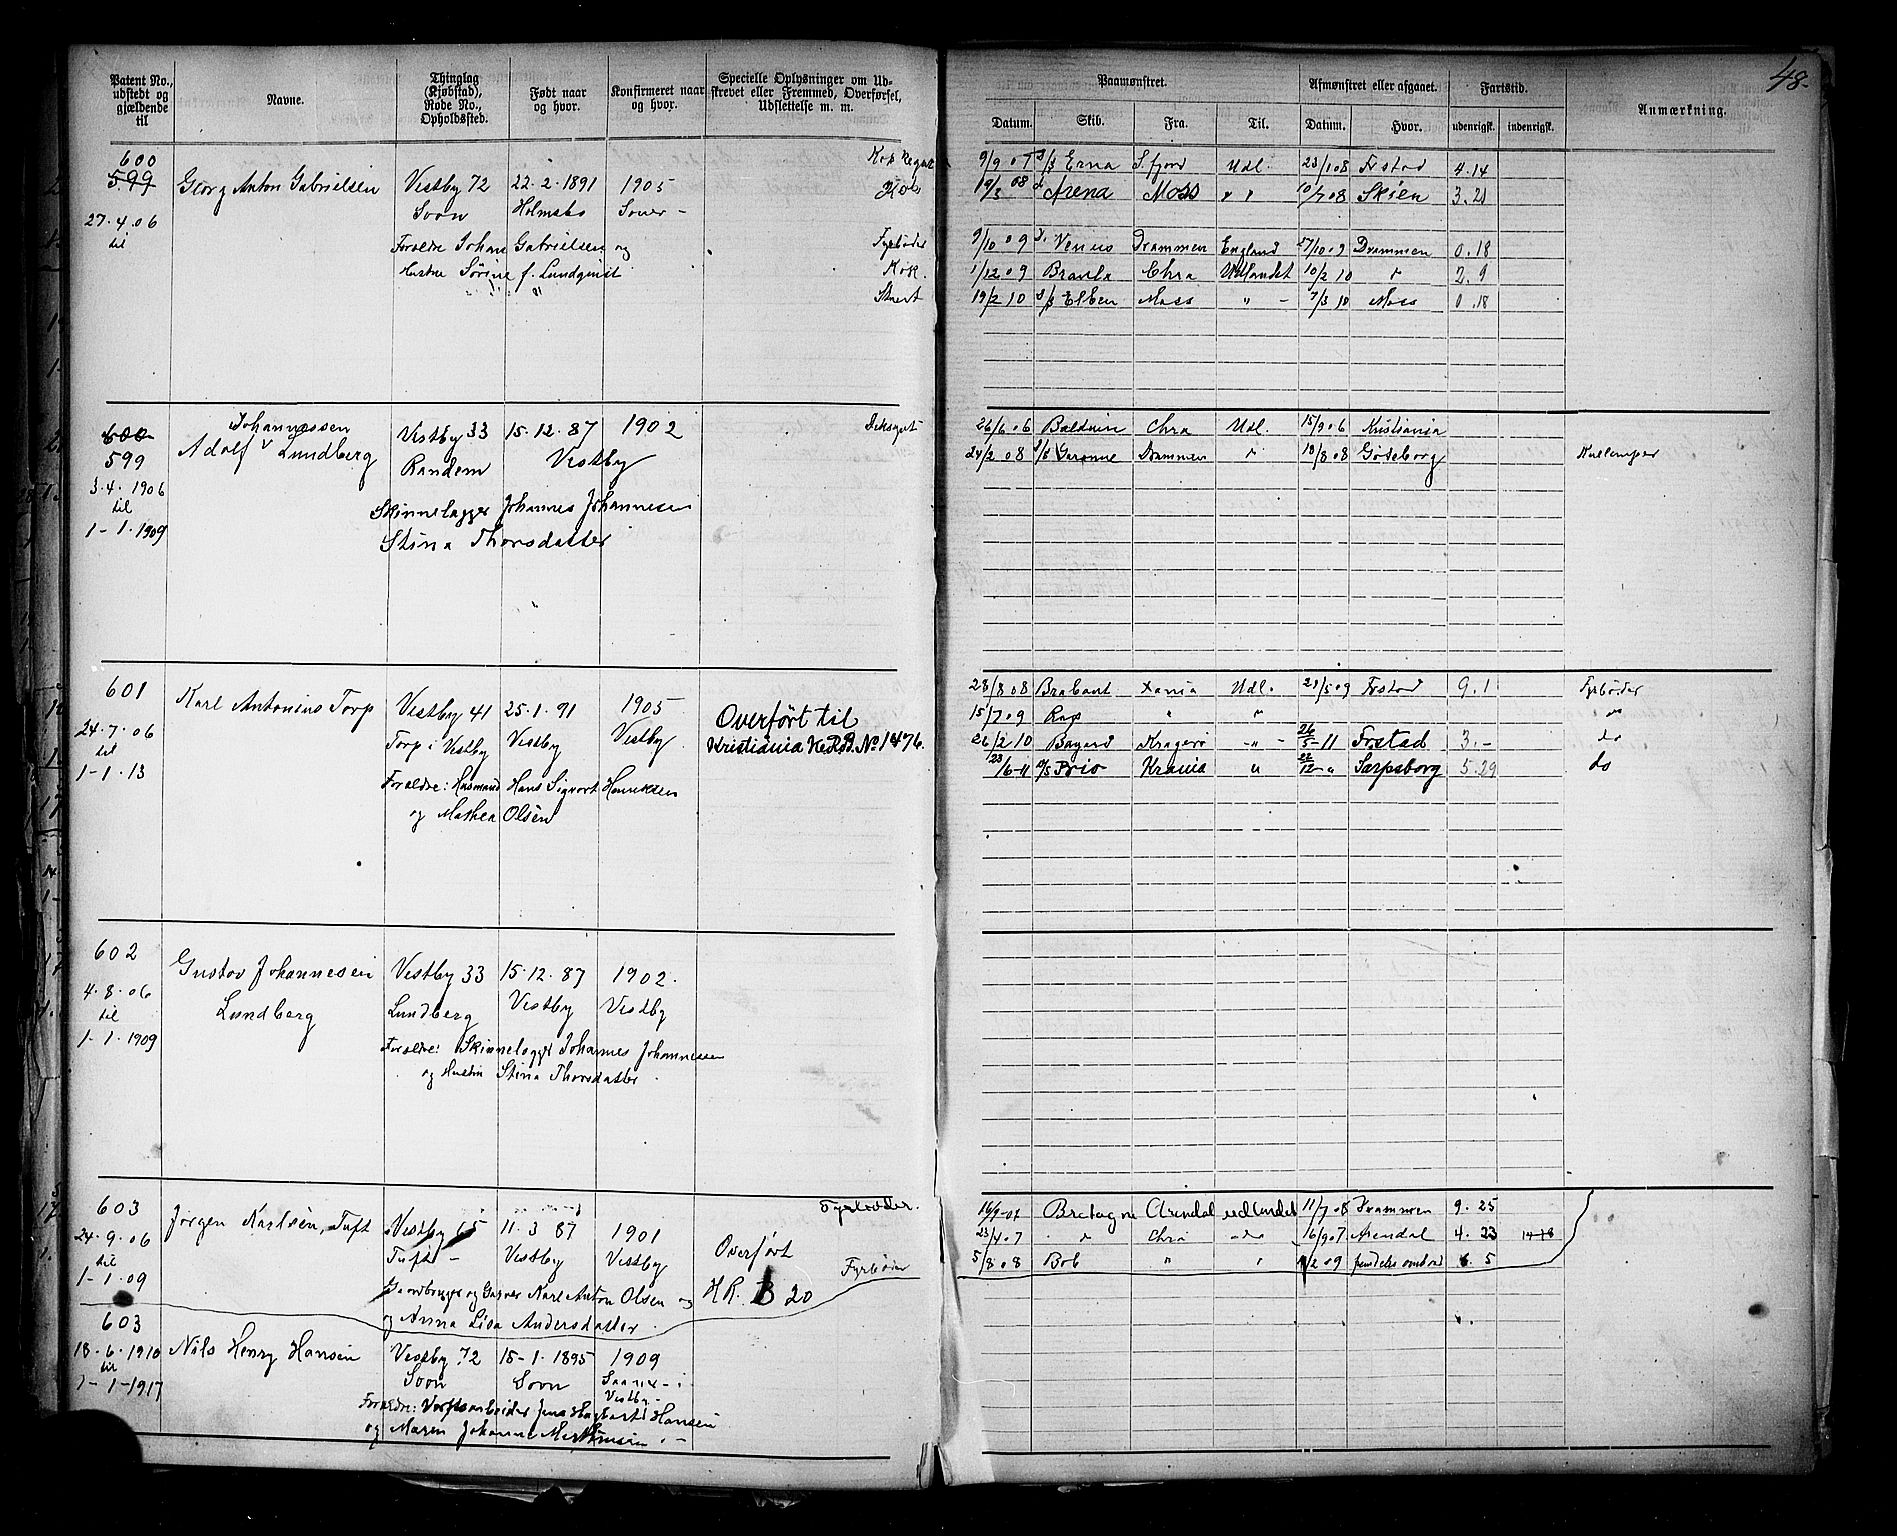 48.
Patent No., udstedt og gjældende til
Navne.
Thinglag (Kjøbstad), Rode No., Opholdssted.
Født naar og hvor.
Konfirmeret naar og hvor.
Specielle Oplysninger om Udskrevet eller Fremmed, Overførsel, Udslettelse m. m.
Paamønstret.
Afmønstret eller afgaaet.
Fartstid.
Anmærkning.
Datum.
Skib.
Fra.
Til.
Datum.
Hvor.
udenrigsk.
indenrigsk.
600
599
27.4.06
til
Georg Anton Gabrielsen
Vestby 72
Soon
22.2.1891
Holmsbo
1905
Soner -
Forældre Johan Gabrielsen og
Hustru Sørine f. Lundqvist
Kok
Fyrbøder
Kok.
Stuert
9/9 07 S/S Erna S.fjord Udl. 23/1 08 Frstad 4.14
19/3 08 Arena Moss " " 10/7 08 Skien 3.21
9/10 09 Venus Drammen England 27/10 09 Drammen 0.18
1/12 09 Brauta Chra Utlandet 10/2 10 " 2.9
19/2 10 S/S Elben Moss " - 7/3 10 Moss 0.18
600
599
3.4.1906
til
1-1.1909
Johannessen
Adolf v Lundberg
Vestby 33
Randem
15.12.87
Vestby
1902
Skinnelægger Johannes Johannesen
Stina Thorsdatter
Jeksgut
26/6 06 Balduin Chra Udl. 15/9 06 Kristiania
24/2 08 S/S Garonne Drammen " 18/8 08 Göteborg
Kullemper
601
24.7.06
til
1-1.13
Karl Antonius Torp
Vestby 41
Torp i Vestby
25.1.91
Vestby
1905
Vestby
Overført til
Kristiania H.R.B. No 1476.
Forældre: Husmand Hans Sigvart Henriksen
og Mathea Olsen
28/8 08 Brabant Xania Udl. 29/5 09 Frstad 9.1 Fyrbøder
15/7 09 Rap " " do
26/2 10 Bayard Kragerø -"- 26/5-11 Frstad 3.- do
23/6-11 S/S Frio Krania " 22/12-" Sarpsborg 5.29 do
602
4.8.06
til
1-1.1909
Gustav Johannesen
Lundberg
Vestby 33
Lundberg
15.12.87
Vestby
1902.
Vestby
Forældre: Skinnelægger Johannes Johannessen
og Hustru Stina Thorsdatter.
603
24.9.06
til
1-1.09
Jørgen Karlsen, Tuft
Vestby 65
Tuft -
11.3.87
Vestby
1901
Vestby
Overført
HR. B 20
Fyrbøder.
Fyrbøder
Gaardbruger og Gasner Karl Anton Olsen og
og Anna Lisa Andersdatter.
16/9-07 Bretagne Arendal udlandet 11/7 08 Drammen 9.25
23/4 07 " Chra do 16/9 07 Arendal 4.23
5/8 08 Bob " " 1/2 09 fremdeles ombord 6.5
603
18.6.1910
til
1-1-1917
Nils Henry Hansen
Vestby 72
Soon
15-1.1895
Soon
1909
Vestby -
Forældre: Værftsarbeider Jens Hagbart Hansen
og Maren Johanne Mortensen . -